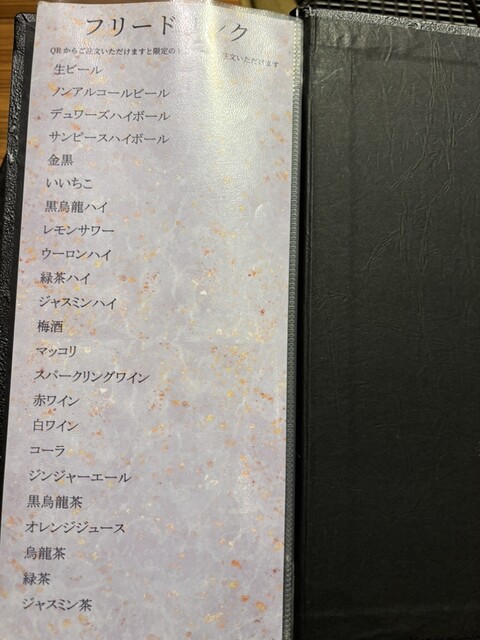 フリードリンク
QRからご注文いただけますと限定の 注文いただけます
生ビール
ノンアルコールビール
デュワーズハイボール
サンピースハイボール
金黒
いいちこ
黒烏龍ハイ
レモンサワー
ウーロンハイ
緑茶ハイ
ジャスミンハイ
梅酒
マッコリ
スパークリングワイン
赤ワイン
白ワイン
コーラ
ジンジャーエール
黒烏龍茶
オレンジジュース
烏龍茶
緑茶
ジャスミン茶